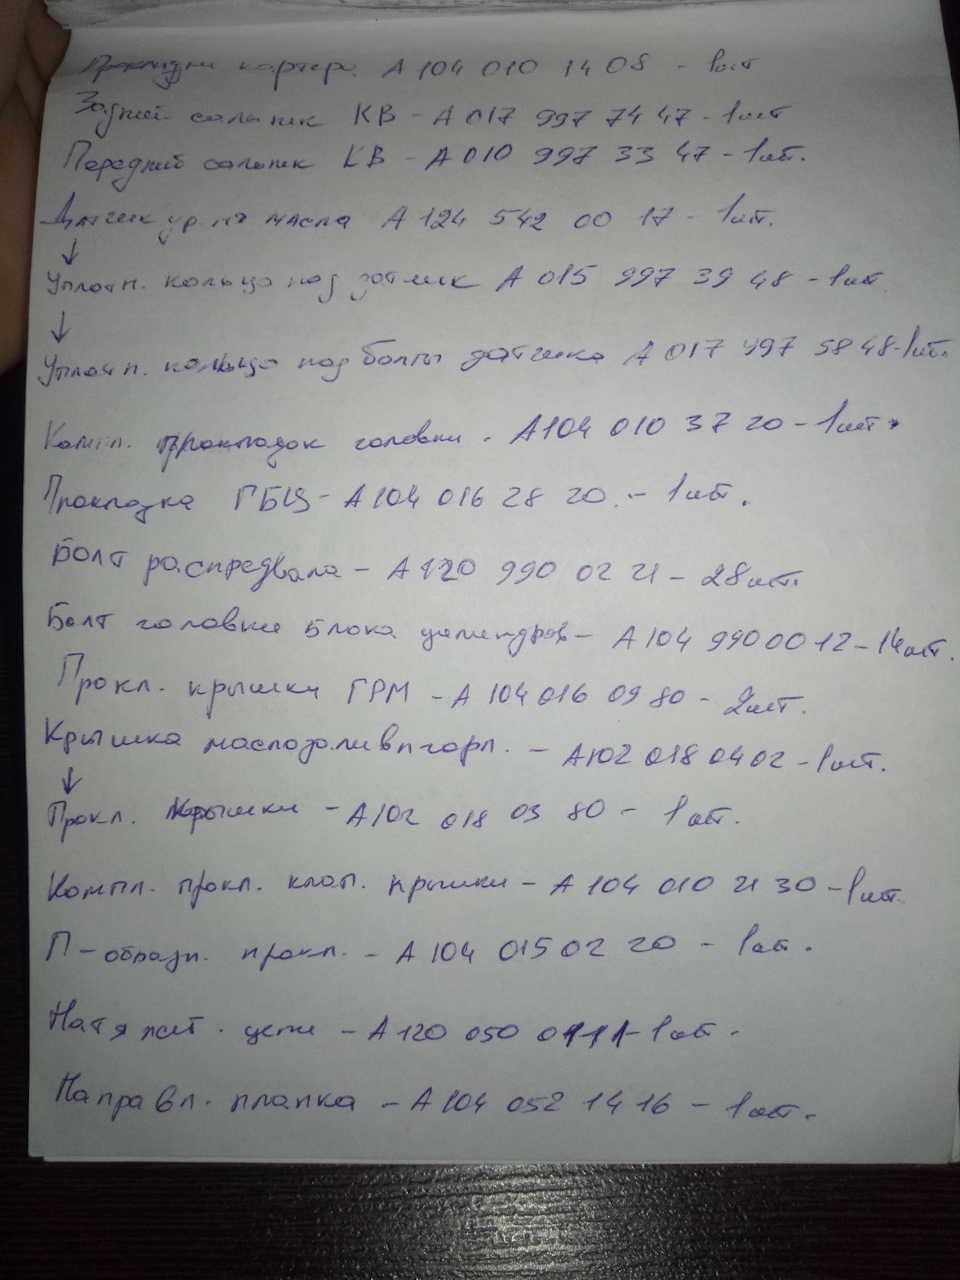 Прокладки картер. А 104 010 14 08 - 1шт
Задний сальник КВ - А 017 997 74 47 - 1шт
Передний сальник КВ - А 010 997 33 47 - 1шт.
Датчик ур-на масла А 124 542 00 17 - 1шт.
↓
Уплотн. кольцо под датчик А 015 997 39 48 - 1шт
↓
Уплотн. кольцо под болты датчика А 017 997 58 48-1шт.
Компл. прокладок головки. А104 010 37 20 - 1шт.
Прокладка ГБЦ - А 104 016 28 20. - 1шт.
Болт распредвала - А 120 990 02 21 - 28шт.
Болт головки блока цилиндров - А 104 990 00 12 - 14шт.
Прокл. крышки ГРМ - А 104 016 09 80 - 2шт.
Крышка маслозаливн горл. - А102 018 04 02 - 1шт.
↓
Прокл. крышки - А 102 018 03 80 - 1шт.
Компл. прокл. клап. крышки - А 104 010 21 30 - 1шт.
П-образн. прокл. - А 104 015 02 20 - 1шт.
Натяжит. цепи - А 120 050 01 11 - 1шт.
Направл. планка - А 104 052 14 16 - 1шт.